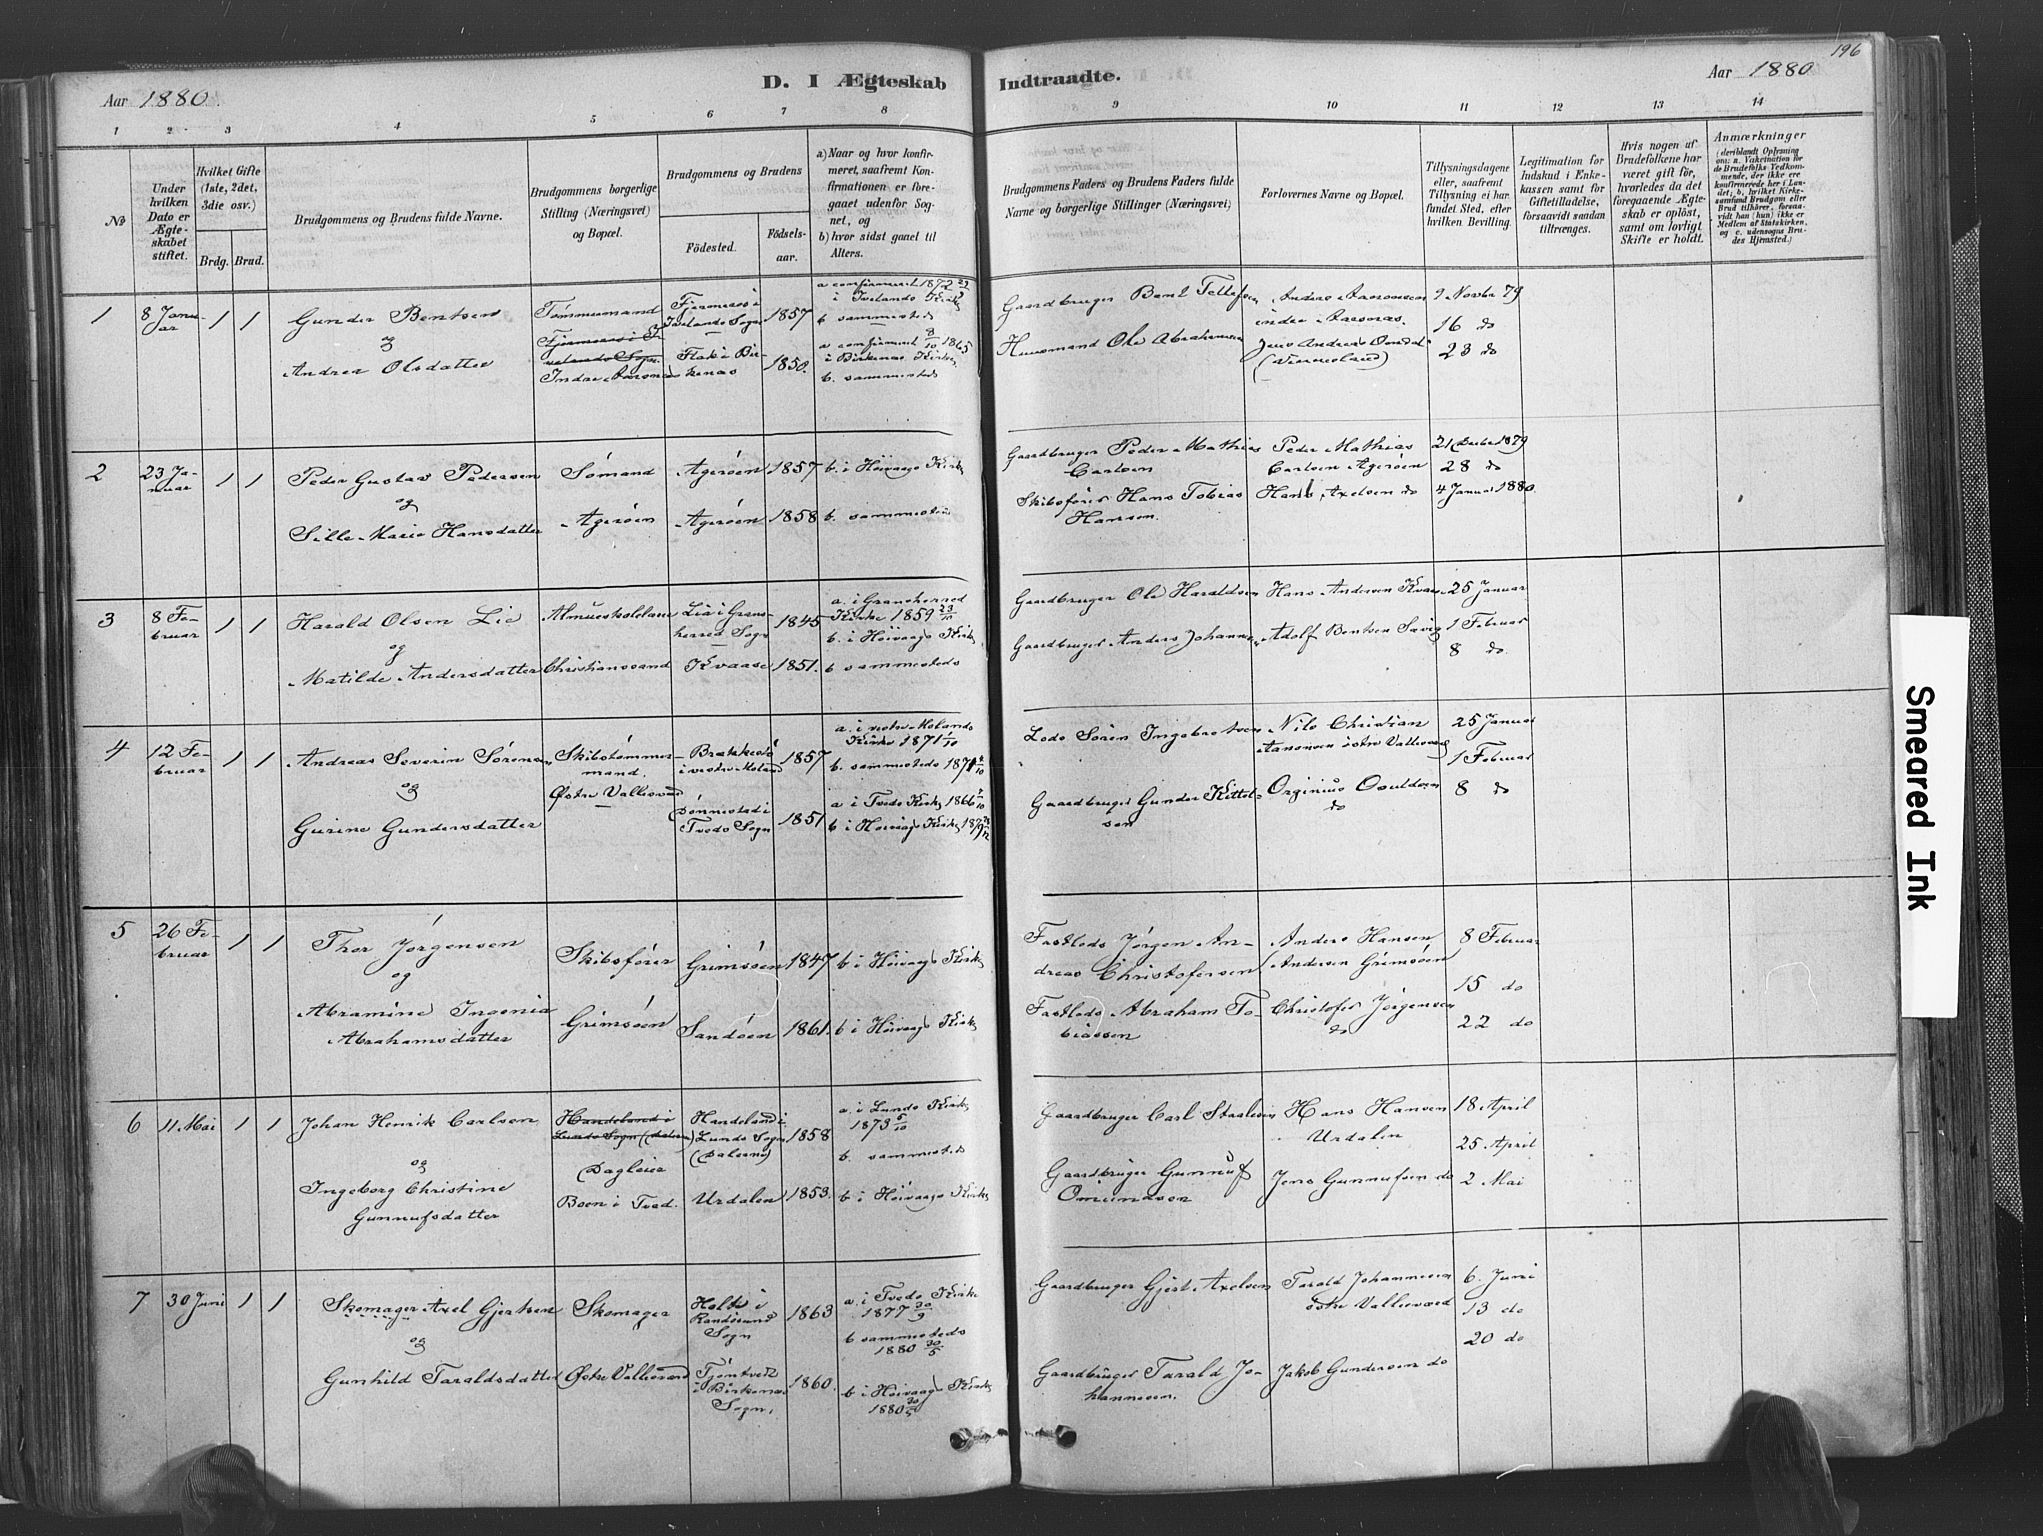 196
Aar 1880.
D. I Ægteskab Indtraadte.
Aar 1880
1 2 3 4 5 6 7 8 9 10 11 12 13 14
No
Under hvilken Dato er Ægteskabet stiftet.
Hvilket Gifte (1ste, 2det, 3die osv.)
Brdg. Brud.
Brudgommens og Brudens fulde Navne.
Brudgommens borgerlige Stilling (Næringsvei) og Bopæl.
Brudgommens og Brudens
Födested. Födselsaar.
a) Naar og hvor konfirmeret, saafremt Konfirmationen er foregaaet udenfor Sognet, og
b) hvor sidst gaaet til Alters.
Brudgommens Faders og Brudens Faders fulde Navne og borgerlige Stillinger (Næringsvei)
Forlovernes Navne og Bopæl.
Tillysningsdagene eller, saafremt Tillysning ei har fundet Sted, efter hvilken Bevilling.
Legitimation for Indskud i Enkekassen samt for Giftetilladelse, forsaavidt saadan tiltrænges.
Hvis nogen af Brudefolkene har været gift för, hvorledes da det foregaaende Ægteskab er oplöst, samt om lovligt Skifte er holdt.
Anmærkninger
(deriblandt Oplysning om: a. Vakcination for de Brudefolks Vedkommende, der ikke ere konfirmerede her i Landet; b. hvilket Kirkesamfund Brudgom eller Brud tilhörer, forsaavidt han (hun) ikke er Medlem af Statskirken, og c. udensogns Brudes Hjemsted.)
1
8 Januar
1 1
Gunder Bentsen
og
Andrea Olsdatter
Tømmermand
Indre Aasenæs
Ivelands Sogn
Flak i Birkenæs
1857
1850.
a confirmeret 1872
i Ivelands Kirke
b sammesteds
a confirmeret 8/10 1865
i Birkenæs Kirke
b. sammesteds
Gaardbruger Bent Tellefsen
Huusmand Ole Abrahamsen
9 Novbr 79
16 do
23 do
2
23 Januar
1 1
Peder Gustav Pedersen
og
Sille Marie Hansdatter
Sømand
Agerøen
Agerøen
Agerøen
1857
1858
b. i Höivaags Kirke
b. sammesteds
Gaardbruger Peder Mathias Carlsen
Skibsfører Hans Tobias Hansen.
Peder Mathias Carlsen Agerøen
Hans Axelsen do
21 Decbr 1879
28 do
4 Januar 1880.
3
8 Februar
1 1
Harald Olsen Lie
og
Matilde Andersdatter
Almueskolelærer
Christianssand
Lia i Gransherred Sogn
Kvaase
1845
1851.
a. i Gransherred Kirke 1859 23/10
b. i Höivaags Kirke
b sammesteds
Gaardbruger Ole Haraldsen
Gaardbruger Anders Johannesen
Hans Andersen Kvaase
Adolf Bentsen Sævig
25 Januar
1 Februar
8 do.
4
12 Februar
1 1
Andreas Severin Sørensen
og
Gurine Gundersdatter
Skibstømmermand.
Østre Vallesværd
i vestre Moland
Dönnestad i Tveds Sogn
1857
1851
a. i vestre Molands Kirke 1871 1/10
b. sammesteds 1871
a i Tveds Kirke 1866
b i Höivaags Kirke
Lods Sören Ingebretsen
Gaardbruger Gunder Kittelsen
Nils Christian Aanonsen östre Vallesværd
Orginius Osuldsen do
25 Januar
1 Februar
8 do
5
26 Februar
1 1
Thor Jørgensen
og
Abramine Ingenia Abrahamsdatter
Skibsfører
Grimsöen
Grimsöen
Sandöen
1847
1861.
b i Höivaags Kirke
b i Höivaags Kirke
Fastlods Jørgen Andreas Christofersen
Fastlods Abraham Tobiassen
Anders Hansen
Andersen Grimsöen
Christofer Jørgensen do
8 Februar
15 do
22 do
6
11 Mai
1 1
Johan Henrik Carlsen
og
Ingeborg Christine Gunnufsdatter
Dagleier
Boen i Tved.
Handeland i Lunds Sogn (Dalerne)
Urdalen
1858
1853.
a. i Lunds Kirke 1873 5/10
b. sammesteds
b i Höivaags Kirke
Gaardbruger Carl Staalesen
Gaardbruger Gunnuf Omundsen
Hans Hansen Urdalen
Jens Gunnufsen do
18 April
25 April
2 Mai
7
30 Juni
1 1
Skomager Axel Gjertsen
og
Gunhild Taraldsdatter
Skomager
Østre Vallesværd
Holte i Randøsund Sogn
i Birkenæs Sogn.
1863
1860.
a. i Tveds Kirke 1877 30/9
b sammesteds 1880 30/5
b i Höivaags Kirke 1880 30/5
Gaardbruger Gjert Axelsen
Gaardbruger Tarald Johannesen.
Tarald Johannesen östre Vallesværd
Jakob Gundersen do
6. Juni
13 do
20 do
Smeared Ink